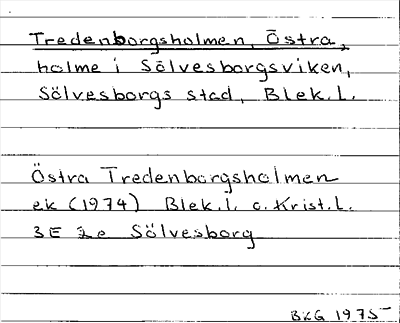 Tredenborgsholmen, Östra,
holme i Sölvesborgsviken,
Sölvesborgs stad, Blek.l.
Östra Tredenborgsholmen
ek (1974) Blek.l. o. Krist.l.
3E 2e Sölvesborg
BKG 1975